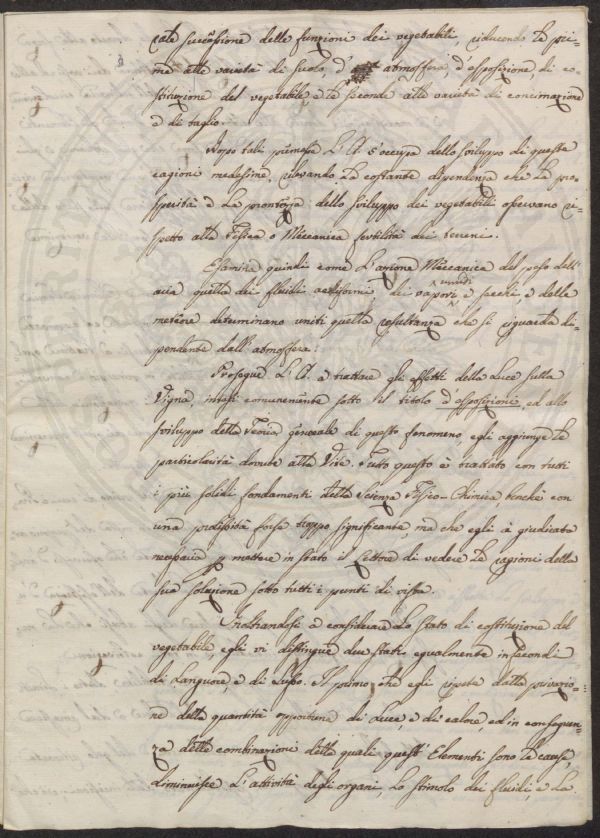 cata successione delle funzioni dei vegetabili, riducendo le pri=
me alle varietà di suolo, d' atmosfera, d'esposizione, di co=
stituzione del vegetabile, e le seconde alle varietà di concimazione
e di taglio.
Dopo tali premesse L'A. s'occupa dello sviluppo di queste
cagioni medesime, rilevando la costante dipendenza che la pro=
sperità e la prontezza dello sviluppo dei vegetabili osservano ri=
spetto alla Fisica o Meccanica fertilità dei terreni.
Esamina quindi come l'azione Meccanica del peso dell'
aria quella dei fluidi aeriformi dei vapori umidi e secchi, e delle
meteore determinano uniti quella resultanza che si riguarda di=
pendente dall'atmosfera.
Prosegue L'A. a trattare gli effetti della Luce sulla
Vigna, intesi comunemente sotto il titolo d'esposizioni, ed allo
sviluppo della Teoria generale di questo fenomeno, egli aggiunge le
particolarità dovute alla Vite. Tutto questo è trattato con tutti
i più solidi fondamenti della Scienza Fisico-Chimica, benchè con
una prolissità forse troppo significante, ma che egli à giudicata
necessaria p mettere in stato il Lettore di vedere le ragioni della
sua soluzione sotto tutti i punti di vista.
Inoltrandosi a considerare Lo stato di costituzione del
vegetabile, egli vi distingue due stati egualmente infecondi
di Languore, e di Lusso. Il primo che egli ripete dalla privazio=
ne della quantità opportuna di Luce, e di calore, ed in conseguen=
za delle combinazioni delle quali questi Elementi sono la causa,
diminuisce L'attività degli organi, Lo stimolo dei fluidi, e La